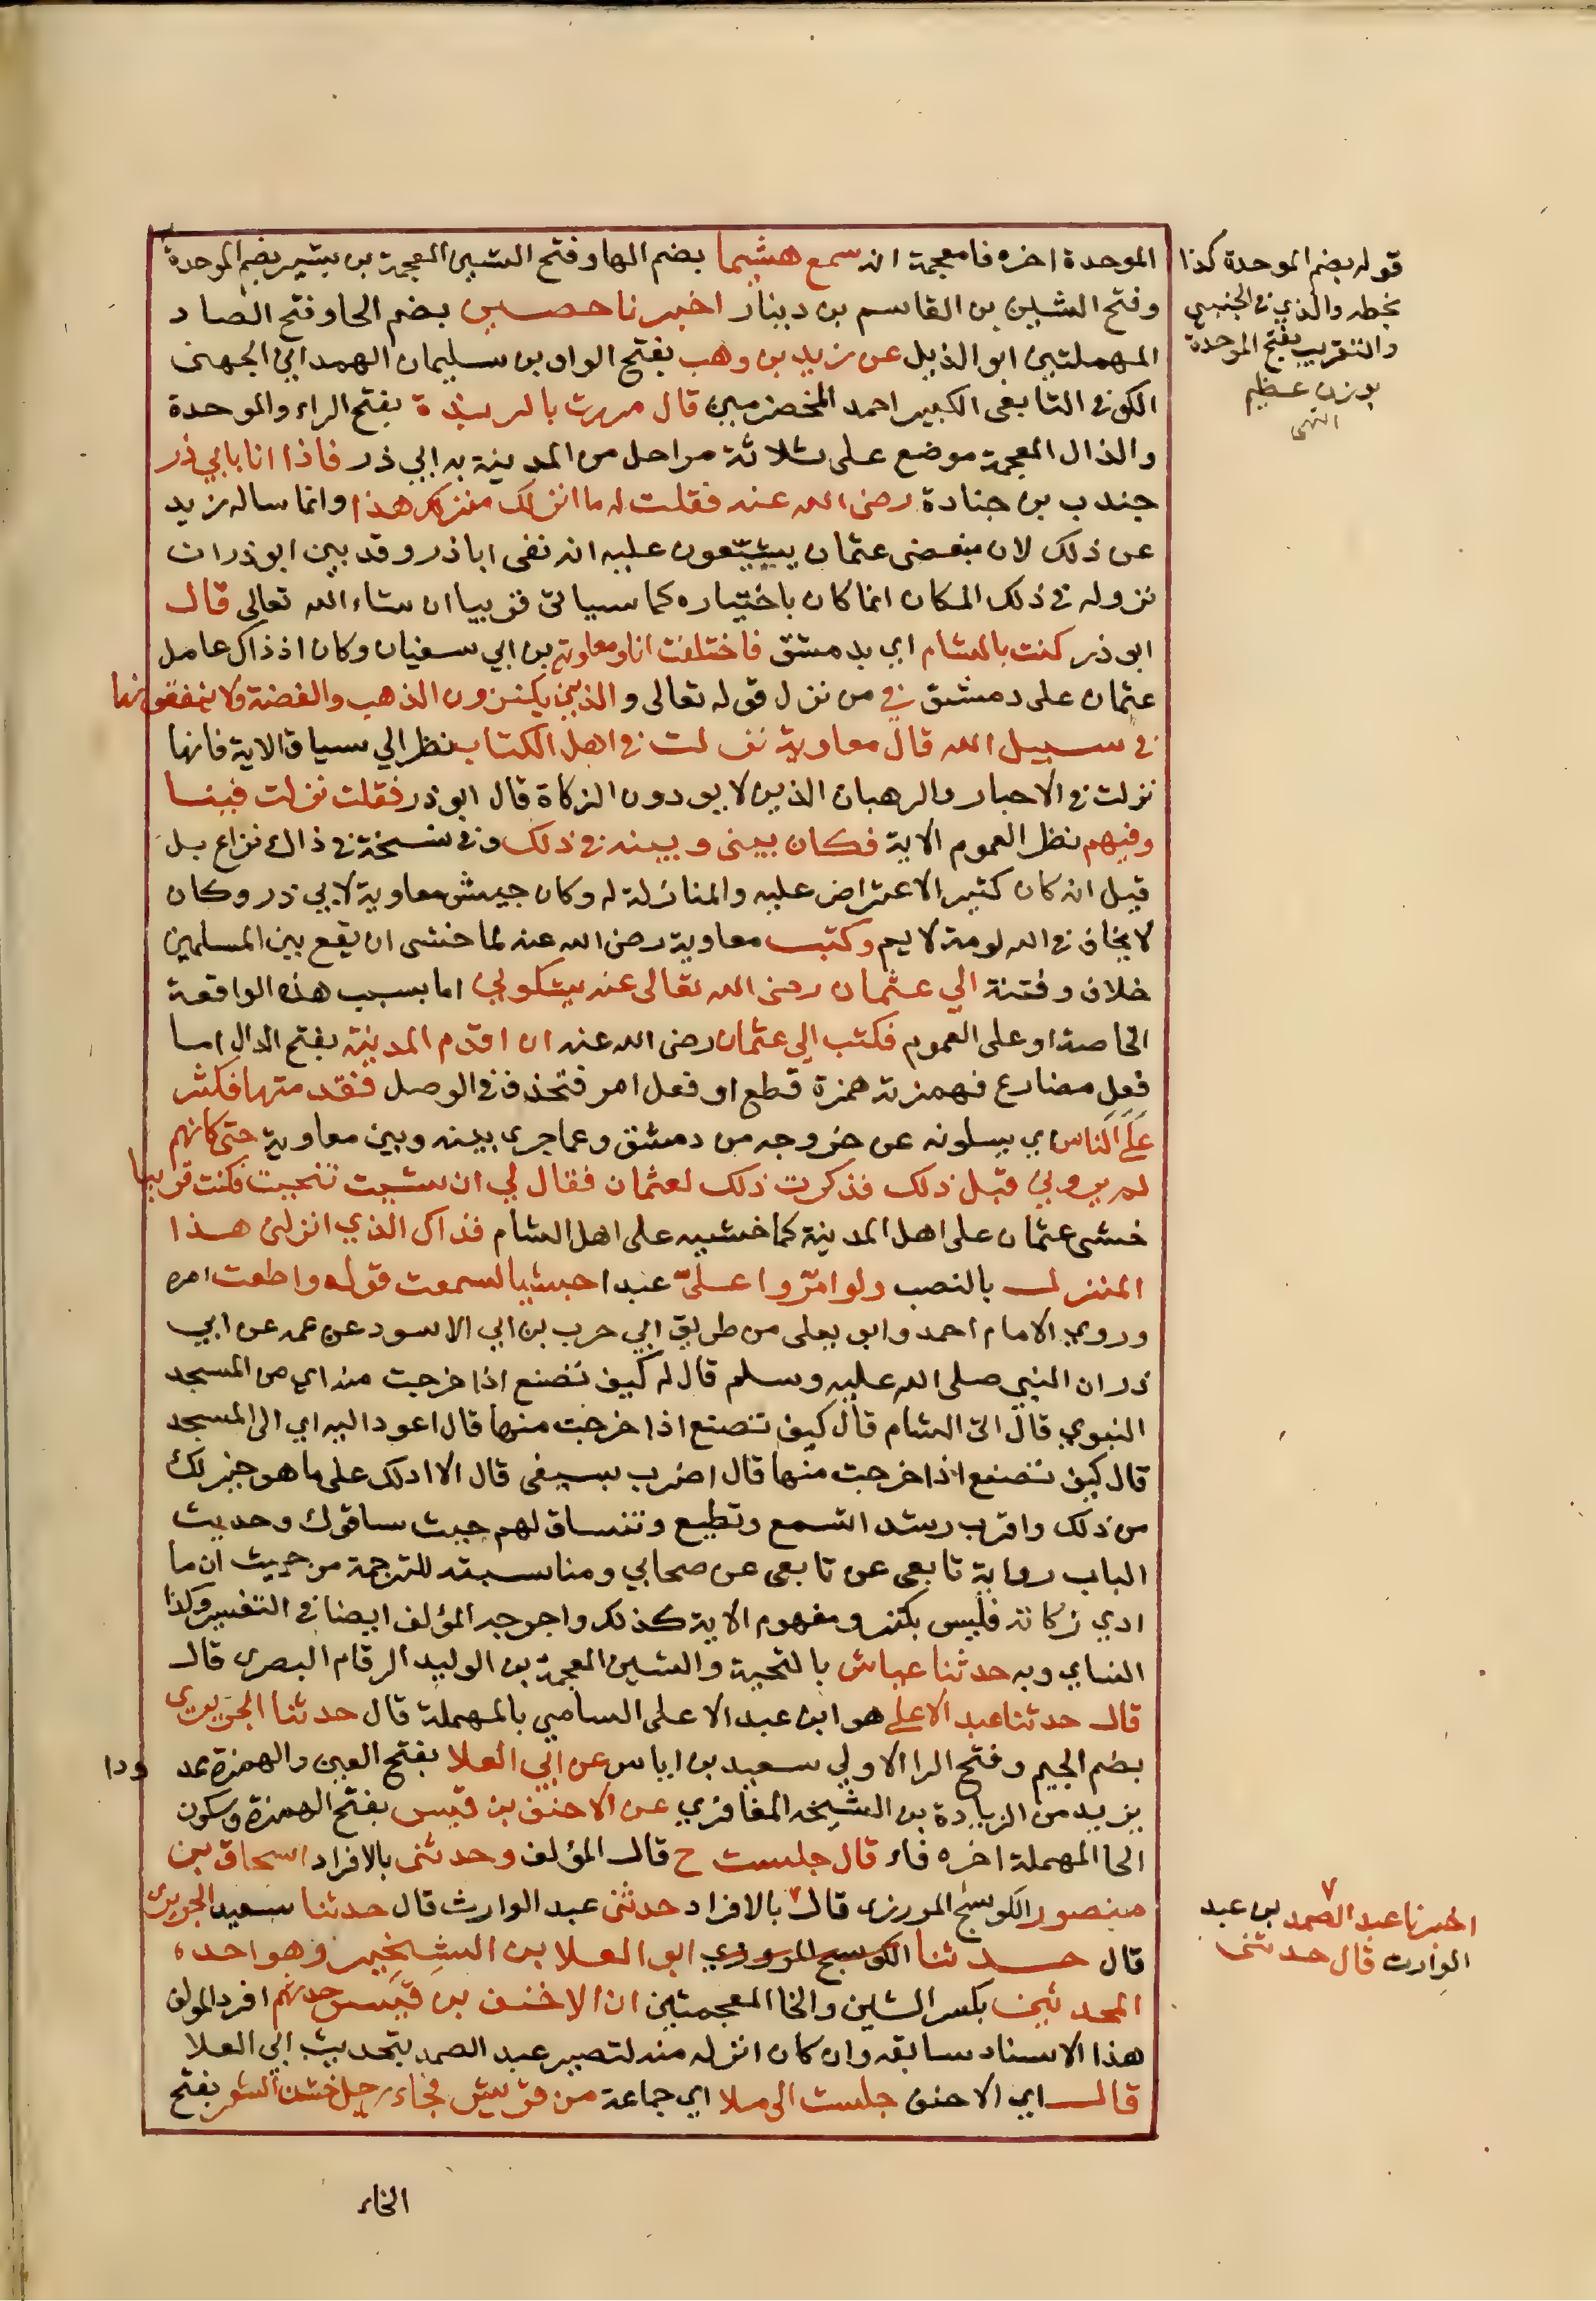 الموحدة اخره فا معجمة انه سمع هشيما بضم الها وفتح الشين المعجمة بن بشير بضم الموحدة
وفتح الشين بن القاسم بن دينار اخبرنا حصين بضم الحا وفتح الصاد
المهملتين ابو الذيل عن زيد بن وهب بفتح الواو بن سليمان الهمداني الجهني
الكوفي التابعي الكبير احمد المخضرمين قال مررت بالربذة بفتح الراء والموحدة
والذال المعجمة موضع على ثلاثة مراحل من المدينة به ابي ذر فاذا انا بابي ذر
جندب بن جنادة رضي الله عنه فقلت له ما انزلك منزلك هذا وانما ساله زيد
عن ذلك لان مبغضي عثمان يشيّعون عليه انه نفى اباذر وقد بين ابو ذر ان
نزوله في ذلك المكان انما كان باختياره كما سياتي قريبا ان شاء الله تعالى قال
ابو ذر كنت بالشام اي بدمشق فاختلفت انا ومعاوية بن ابي سفيان وكان اذ ذاك عامل
عثمان على دمشق في من نزل قوله تعالى والذين يكنزون الذهب والفضة ولا ينفقونها
في سبيل الله قال معاوية نزلت في اهل الكتاب نظر الي سياق الاية فانها
نزلت في الاحبار والرهبان الذين لا يودون الزكاة قال ابو ذر فقلت نزلت فينا
وفيهم نظر العموم الاية فكان بيني وبينه في ذلك وفي نسخة في ذاك نزاع بل
قيل انه كان كثير الاعتراض عليه والمنازلة له وكان جيش معاوية لابي ذر وكان
لا يخاف في الله لومة لايم وكتب معاوية رضي الله عنه لما خشى ان يقع بين المسلمين
خلاف وفتنة الي عثمان رضي الله تعالى عنه يشكوني اما بسبب هذه الواقعة
الخاصة او على العموم فكتب الي عثمان رضي الله عنه ان اقدم المدينة بفتح الدال اما
فعل مضارع فهمزته همزة قطع او فعل امر فتحذف في الوصل فقدمتها فكثر
علي الناس اي يسلونه عن خروجه من دمشق وعما جرى بينه وبين معاوية حتى كانهم
لم يروني قبل ذلك فذكرت ذلك لعثمان فقال لي ان شيت تنحيت فكنت قريبا
خشى عثمان على اهل المدينة كما خشيه على اهل الشام فذاك الذي انزلني هذا
المنزل بالنصب ولو امّروا علىّ عبدا حبشيا لسمعت قوله واطعت امره
وروي الامام احمد وابو يعلى من طريق ابي حرب بن ابي الاسود عن عمه عن ابي
ذر ان النبي صلى الله عليه وسلم قال له كيف تصنع اذا خرجت منه اي من المسجد
النبوي قال اتى الشام قال كيف تصنع اذا خرجت منها قال اعود اليه اي الى المسجد
قال كيف تصنع اذا خرجت منها قال اضرب بسيفي قال الا ادلك على ما هو خير لك
من ذلك واقرب رشدا تسمع وتطيع وتنساق لهم حيث ساقوك وحديث
الباب رواية تابعي عن تابعي عن صحابي ومناسبته للترجمة من حيث ان ما
ادي زكاته فليس بكنز ومفهوم الاية كذلك واخرجه المؤلف ايضا في التفسير وكذا
النساي وبه حدثنا عياش بالتحية والشين المعجمة بن الوليد الرقام البصري قال
قال حدثنا عبد الاعلي هو ابن عبد الاعلى السامي بالمهملة قال حدثنا الجريري
بضم الجيم وفتح الرا الاولي سعيد بن اياس عن ابي العلا بفتح العين والهمزة عمد ودا
يزيد من الزيادة بن الشيخه المغافري عن الاحنف بن قيس بفتح الهمزة وسكون
الحا المهملة اخره فاء قال جلست ح قال المؤلف وحدثني بالافراد اسحاق بن
منصور الكوسج المروزي قال بالافراد حدثني عبد الوارث قال حدثنا سعيد الجريري
قال حدثنا الكوسج المروزي ابو العلا بن الشخير وهو احده
المحدثين بكسر الشين والخا المعجمتين ان الاخنف بن قيس حدثهم افرد المولف
هذا الاسناد سابقه وان كان انزله منه لتصبير عبد الصمد بتحديث ابي العلا
قال اي الاحنف جلست الى ملا اي جماعة من قريش فجاء رجل خشن الشعر بفتح
الخاء
قوله بضم الموحدة كذا
بخطه والذي في الجنبهي
والتقريب بفتح الموحدة
بوزن عظيم
انتهى
اخبرنا عبد الصمد بن عبد
الوارث قال حدثني